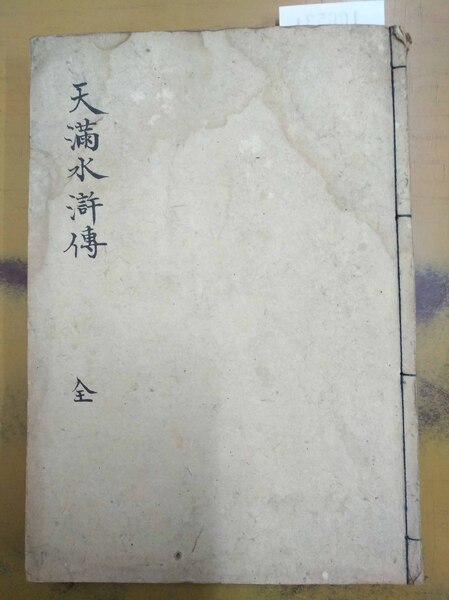 天滿水滸傳
全